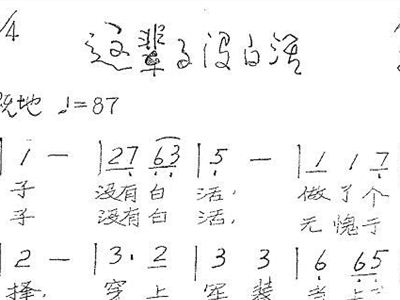 /4
这辈子没白活
地 ♩=87
| 1 — | 27 63 | 5 — | 1 1 7
子 没有白 活, 做了个
子 没有白 活, 无愧于
| 2 — | 3· 2 | 3 3 | 6 65
择, 穿上 军装 当上